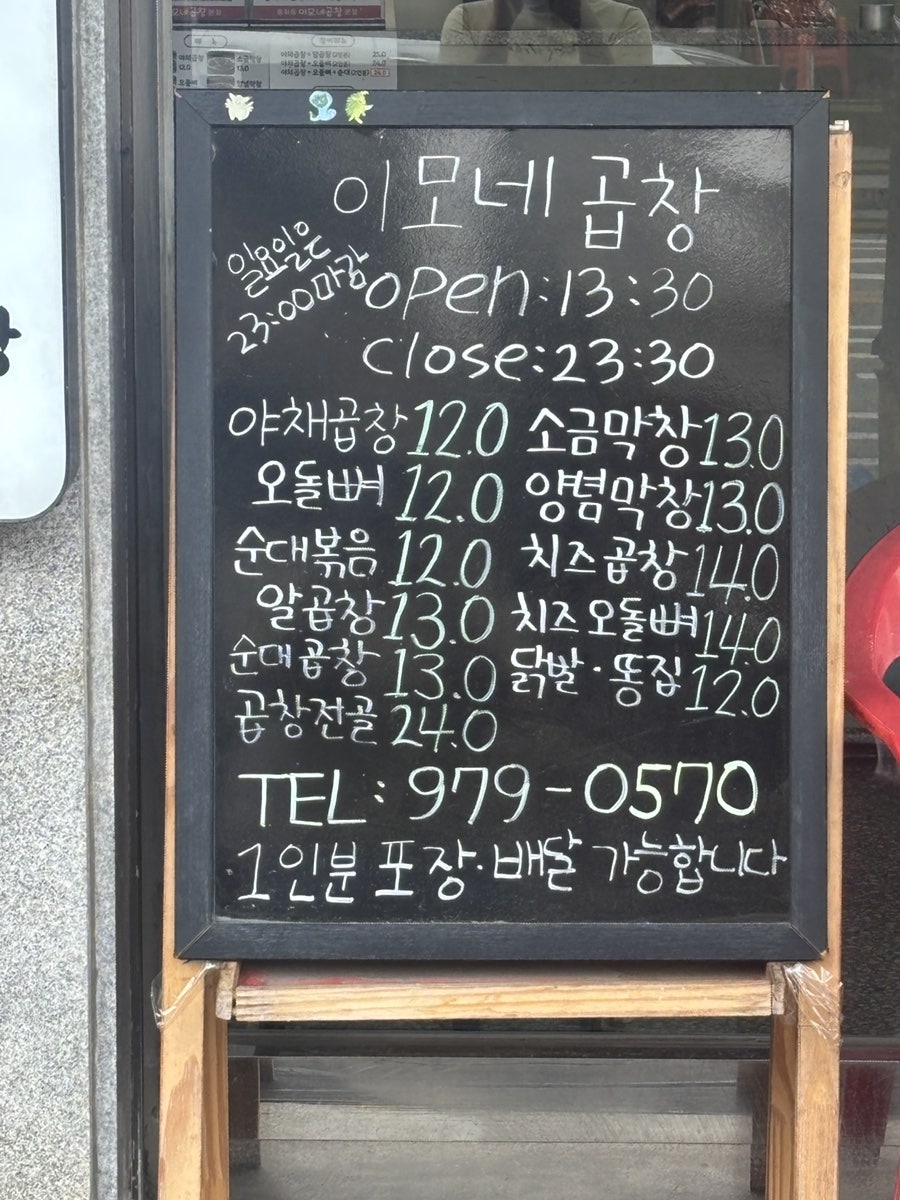 이모네곱창 본점
이모네곱창 본점
이모네 곱창
일요일은
23:00마감
open:13:30
close:23:30
야채곱창 12.0 소금막창 13.0
오돌뼈 12.0 양념막창 13.0
순대볶음 12.0 치즈곱창 14.0
알곱창 13.0 치즈오돌뼈 14.0
순대곱창 13.0 닭발·똥집 12.0
곱창전골 24.0
TEL: 979-0570
1인분 포장·배달 가능합니다